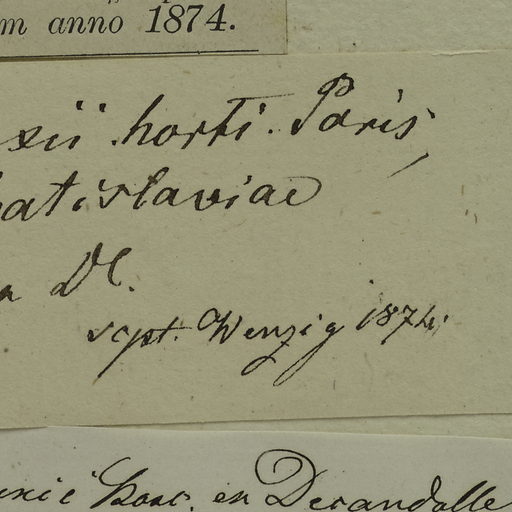 m anno 1874.
xii horti. Paris,
atislaviae
Dl.
sept. Wenzig 1874.
Bosc. en Decandolle